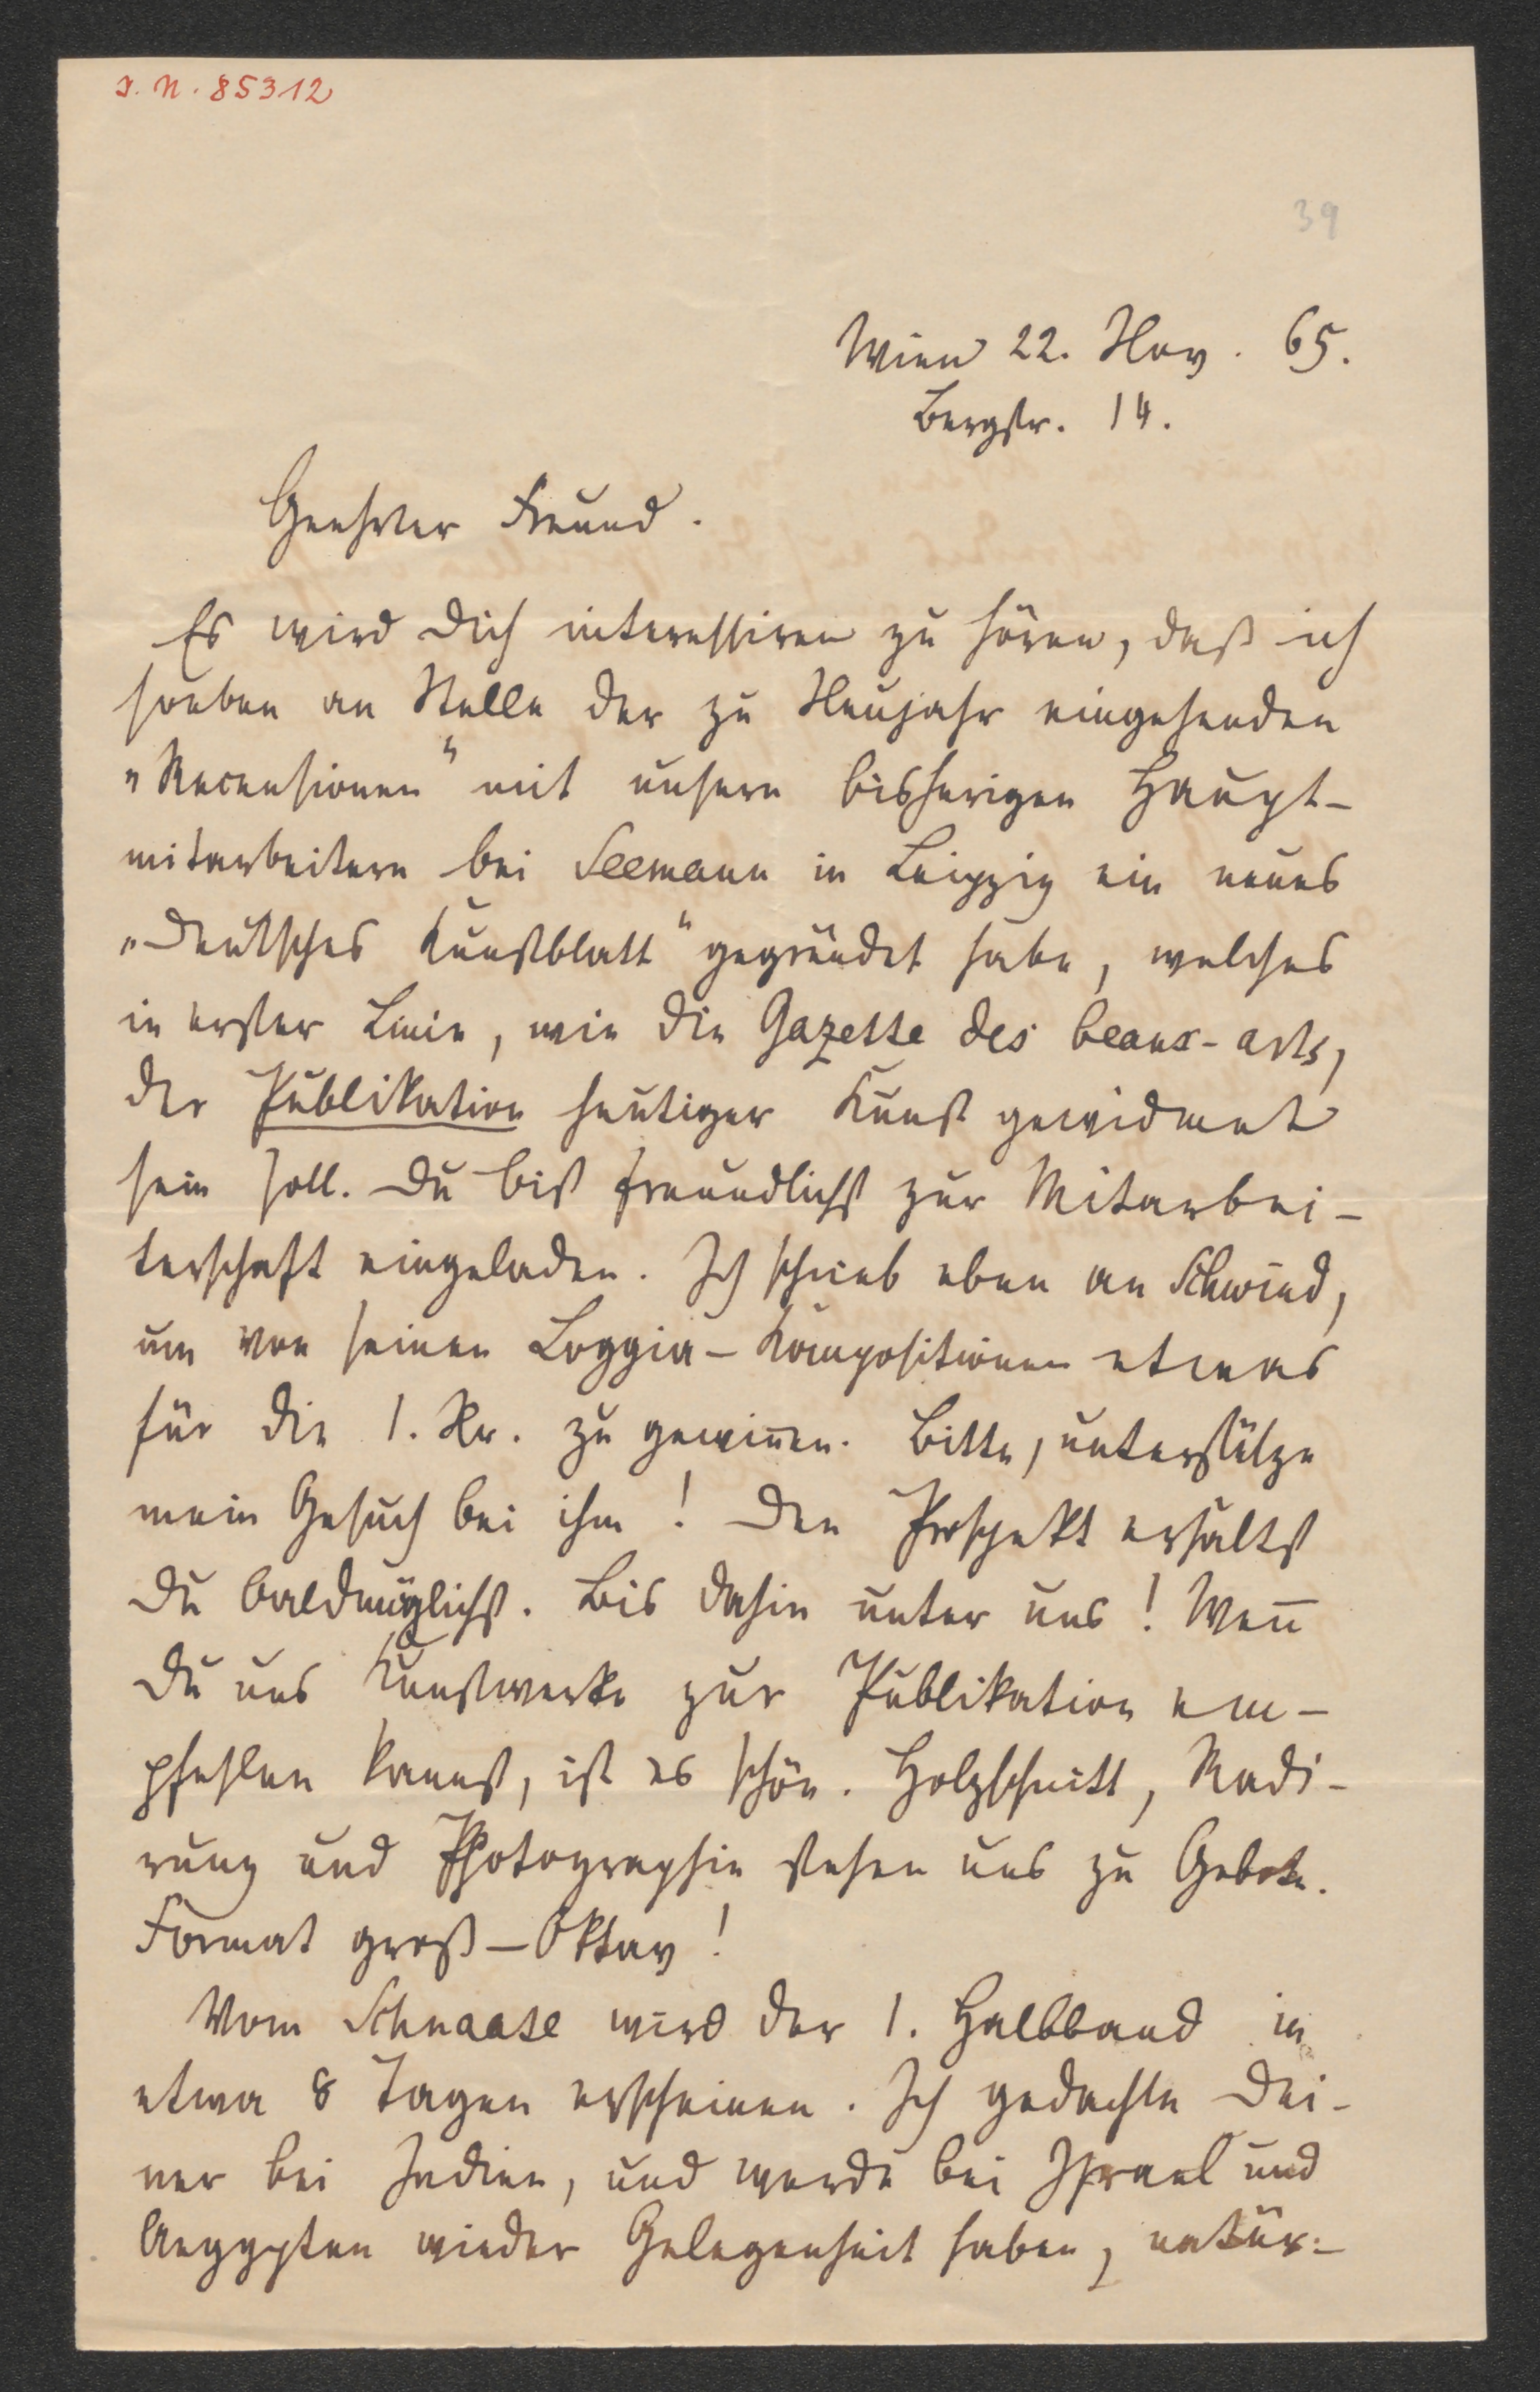 I. N. 85312
39
Wien 22. Nov. 65.
Bergstr. 14.
Geehrter Freund.
Es wird Dich interessiren zu hören, daß ich
soeben an Stelle der zu Neujahr eingehenden
„Recensionen“ mit unsern bisherigen Haupt-
mitarbeitern bei Seemann in Leipzig ein neues
„Deutsches Kunstblatt“ gegründet habe, welches
in erster Linie, wie die Gazette des beaux-arts,
der Publikation heutiger Kunst gewidmet
sein soll. Du bist freundlichst zur Mitarbei-
terschaft eingeladen. Ich schrieb eben an Schwind,
um von seinen Loggia-Kompositionen etwas
für die 1. Nr. zu gewin̄en. Bitte, unterstütze
mein Gesuch bei ihm! Den Prospekt erhältst
Du baldmöglichst. Bis dahin unter uns! Wen̄
Du uns Kunstwerke zur Publikation em-
pfehlen kannst, ist es schön. Holzschnitt, Radi-
rung und Photographie stehen uns zu Gebote.
Format groß-Oktav!
Vom Schnaase wird der 1. Halbband in
etwa 8 Tagen erscheinen. Ich gedachte Dei-
ner bei Indien, und werde bei Israel und
Aegypten wieder Gelegenheit haben, natür-